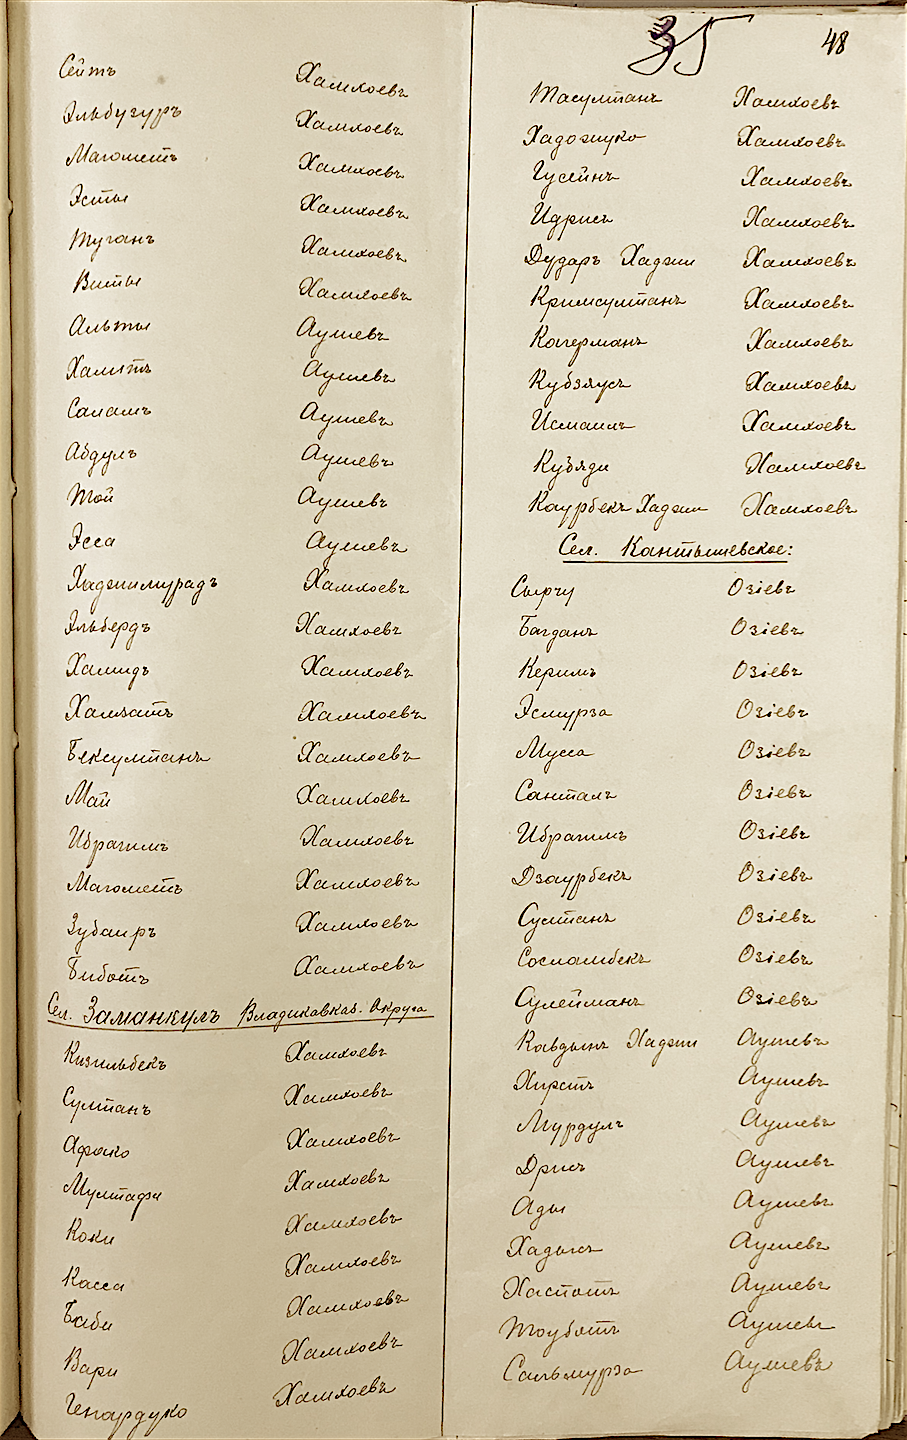 35
48
Сеитъ Хамхоевъ
Эльбузуръ Хамхоевъ
Магометъ Хамхоевъ
Эсты Хамхоевъ
Туганъ Хамхоевъ
Виты Хамхоевъ
Альты Аушевъ
Хамитъ Аушевъ
Саламъ Аушевъ
Абдулъ Аушевъ
Той Аушевъ
Эсса Аушевъ
Хаджимурадъ Хамхоевъ
Эльбердъ Хамхоевъ
Хамидъ Хамхоевъ
Хамзатъ Хамхоевъ
Бексултанъ Хамхоевъ
Май Хамхоевъ
Ибрагимъ Хамхоевъ
Магометъ Хамхоевъ
Зубаиръ Хамхоевъ
Биботъ Хамхоевъ
Сел. Заманкулъ Владикавказ. Округа
Кизильбекъ Хамхоевъ
Султанъ Хамхоевъ
Афако Хамхоевъ
Мултафи Хамхоевъ
Коки Хамхоевъ
Касса Хамхоевъ
Баби Хамхоевъ
Вари Хамхоевъ
Генардуко Хамхоевъ
Тасултанъ Хамхоевъ
Хадожуко Хамхоевъ
Гусейнъ Хамхоевъ
Идрисъ Хамхоевъ
Дударъ Хаджи Хамхоевъ
Кримсултанъ Хамхоевъ
Кагерманъ Хамхоевъ
Кубзяусъ Хамхоевъ
Исмаилъ Хамхоевъ
Кубяди Хамхоевъ
Каурбекъ Хаджи Хамхоевъ
Сел. Кантышевское:
Сырчу Озіевъ
Багданъ Озіевъ
Керимъ Озіевъ
Эсмурза Озіевъ
Мусса Озіевъ
Санталъ Озіевъ
Ибрагимъ Озіевъ
Дзаурбекъ Озіевъ
Султанъ Озіевъ
Сосламбекъ Озіевъ
Сулейманъ Озіевъ
Кавдынъ Хаджи Аушевъ
Хирстъ Аушевъ
Мурдулъ Аушевъ
Дрисъ Аушевъ
Ады Аушевъ
Хадысъ Аушевъ
Хаспотъ Аушевъ
Тоуботъ Аушевъ
Сальмурза Аушевъ